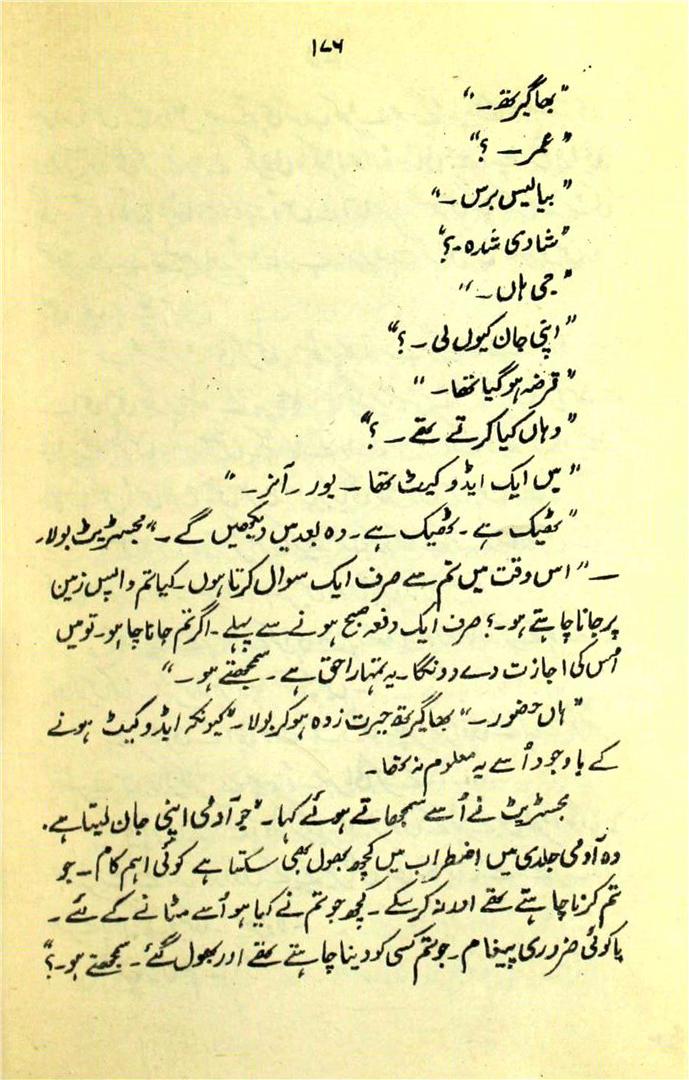 ۱۷۶
"بھاگیرتھ۔"
"عمر۔ ؟"
"بیالیس برس۔"
"شادی شدہ۔؟"
"جی ہاں۔"
"اپنی جان کیوں لی۔ ؟"
"قرضہ ہو گیا تھا۔"
"وہاں کیا کرتے تھے۔ ؟"
"میں ایک ایڈوکیٹ تھا۔ یور۔ آنر۔"
"ٹھیک ہے۔ ٹھیک ہے۔ وہ بعد میں دیکھیں گے۔" مجسٹریٹ بولا۔
— "اس وقت میں تم سے صرف ایک سوال کرتا ہوں۔ کیا تم واپس زمین
پر جانا چاہتے ہو۔؟ صرف ایک دفعہ صبح ہونے سے پہلے۔ اگر تم جانا چاہو۔ تو میں
اُس کی اجازت دے دونگا۔ یہ تمہارا حق ہے۔ سمجھتے ہو۔"
"ہاں حضور۔" بھاگیرتھ حیرت زدہ ہو کر بولا۔ "کیونکہ ایڈوکیٹ ہونے
کے باوجود اُسے یہ معلوم نہ تھا۔
مجسٹریٹ نے اُسے سمجھاتے ہوئے کہا۔ "جو آدمی اپنی جان لیتا ہے۔
وہ آدمی جلدی میں اضطراب میں کچھ بھول بھی سکتا ہے کوئی اہم کام۔ جو
تم کرنا چاہتے تھے اور نہ کر سکے۔ کچھ جو تم نے کیا ہو اُسے مٹانے کے لئے۔
یا کوئی ضروری پیغام۔ جو تم کسی کو دینا چاہتے تھے اور بھول گئے۔ سمجھتے ہو۔؟"